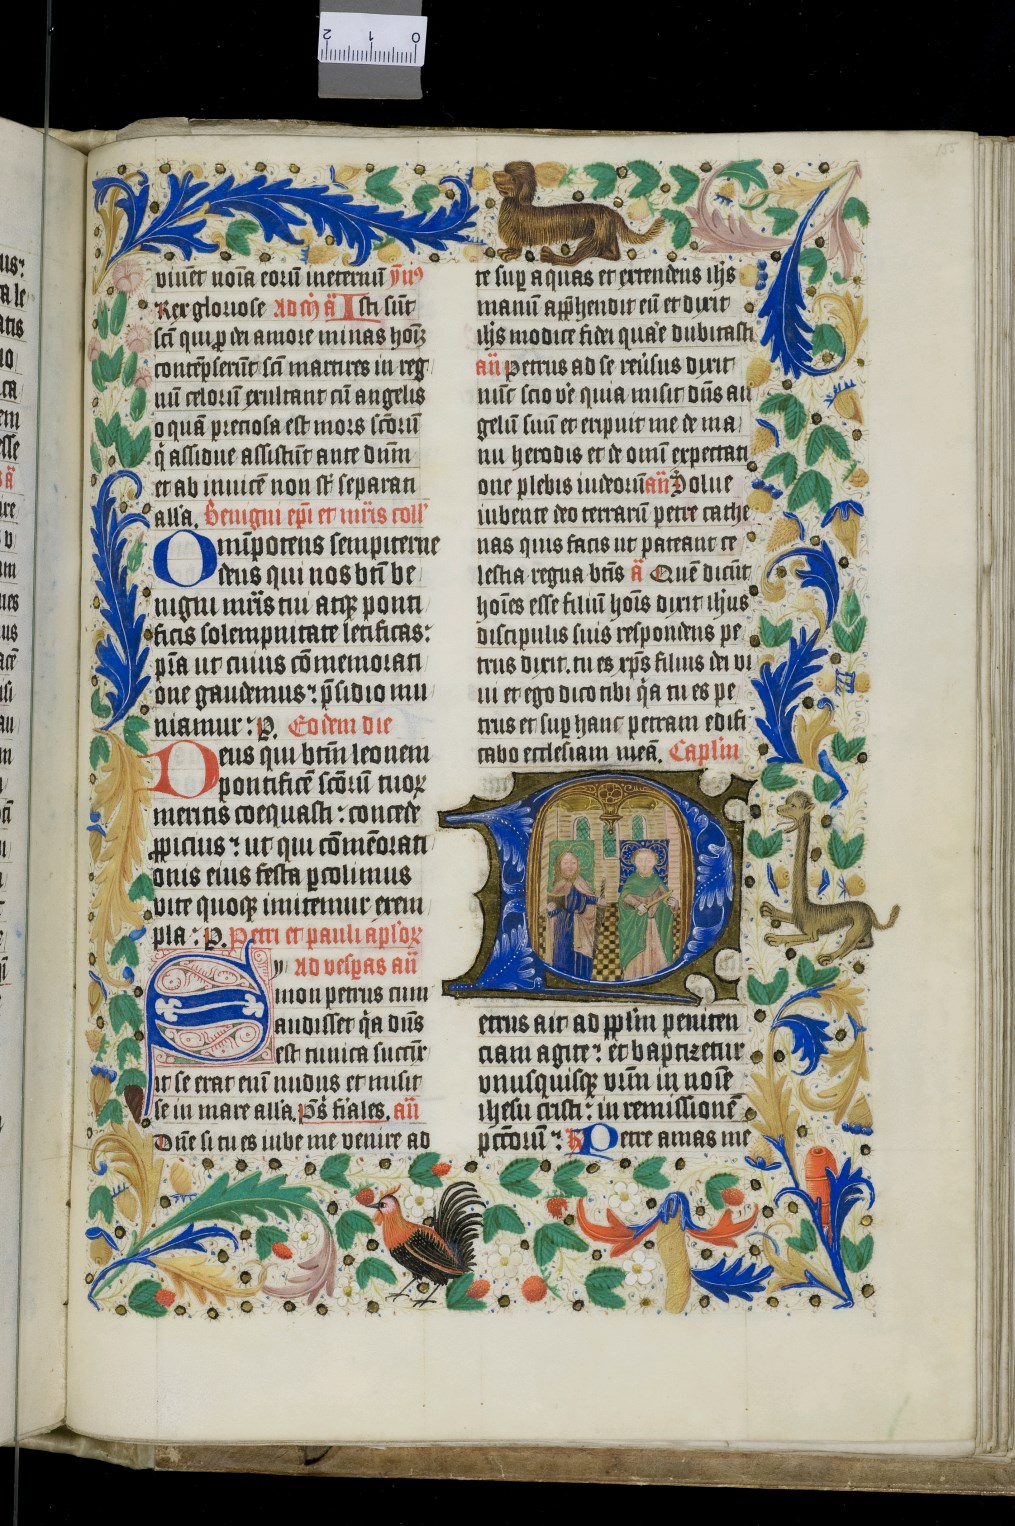 viuēt noīa eorū ineternū ꝟ̄us
Rex gloriose Ad m̄ ā Isti sūt
scī qui ꝓ dei amore minas hoīꝝ
contēpserūt scī martires in reg
nū celorū exultant cū angelis
o quā preciosa est mors scōrū
q̄ assidue assistūt ante dūm
et ab inuicē non sūt separati
alla. Benigni epī et mr̄is coll'
Omīpotens sempiterne
deus qui nos btī be
nigni mr̄is tui atqꝫ ponti
ficis solempnitate letificas:
pr̄a ut cuius cōmemorati
one gaudemus: p̄sidio mu
niamur: P. Eodem die
Deus qui btm̄ leonem
pontificē scōrū tuoꝝ
meritis coequasti: concede
ꝓpicius: ut qui cōmēorati
onis eius festa ꝑcolimus
vite quoqꝫ imitemur exem
pla: P. Petri et pauli aplsoꝝ
Ad vespas añ
Symon petrus cum
audisset q̄a dūs
est tunica succīx
it se erat enī nudus et misit
se in mare alla. Ps̄ fiales. añ
Dūe si tu es iube me venire ad
te suꝑ aquas et extendens ihs̄
manū apphendit eū et dixit
ihs̄ modice fidei quare dubitasti
añ Petrus ad se reūsus dixit
nūc scio ve quia misit dūs an
gelū suū et eripuit me de ma
nu herodis et de omī expectati
one plebis iudeorū añ Solue
iubente deo terrarū petre cathe
nas quis facis ut pateant ce
lestia regna btīs ā Quē dicūt
hoīes esse filiū hoīs dixit ihūs
discipulis suis respondens pe
trus dixit. tu es xp̄s filius dei vi
ui et ego dico tibi q̄a tu es pe
trus et suꝑ hanc petram edifi
cabo ecclesiam meā. Caplm
Petrus ait ad pplm peniten
ciam agite: et baptizetur
vnusquisqꝫ vrm̄ in noīe
ihesu cristi: in remissionē
pctōrū: R Petre amas me